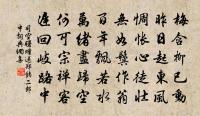 梅含柳已動
昨日起東風
惆悵心徒壯
無如鬢作翁
百年飄若水
萬緒盡歸空
何可宗禪客
遲回岐路中
詞典網集